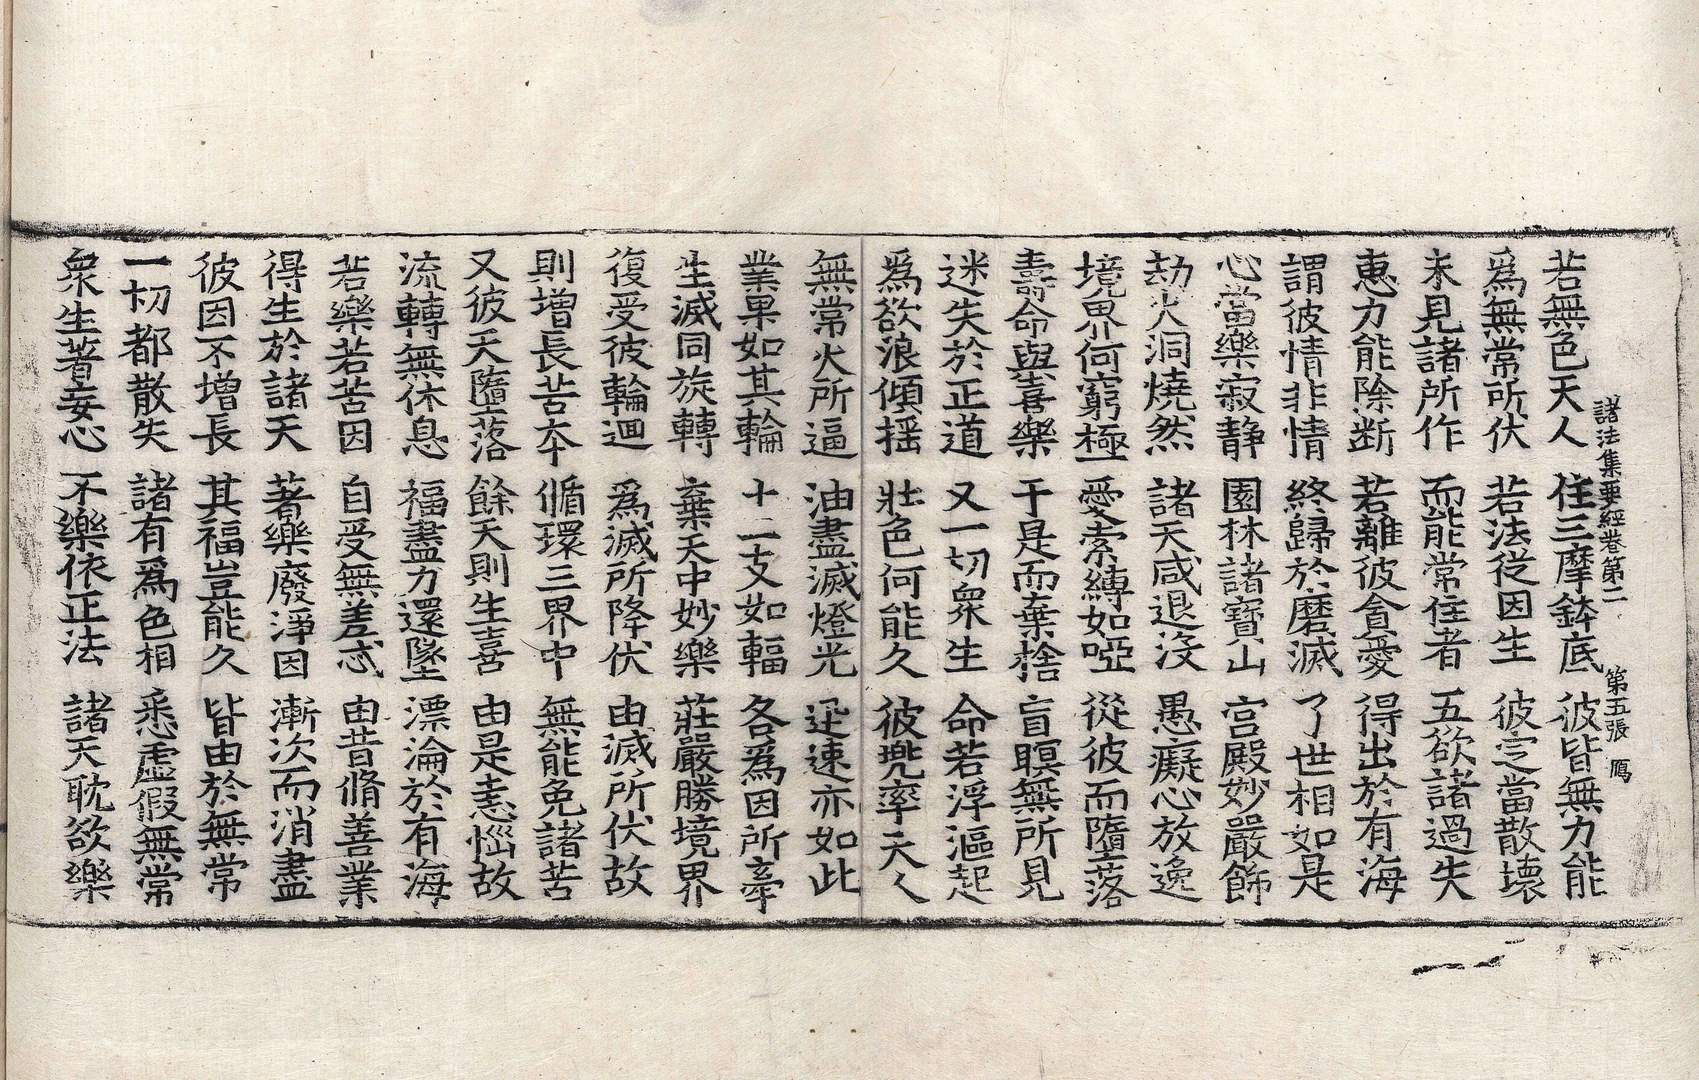 諸法集要經卷第二 第五張 鴈
若無色天人 住三摩鉢底 彼皆無力能
爲無常所伏 若法從因生 彼定當散壞
未見諸所作 而能常住者 五欲諸過失
惠力能除断 若離彼貪愛 得出於有海
謂彼情非情 終歸於磨滅 了世相如是
心當樂寂静 園林諸寶山 宮殿妙嚴飾
劫火洞燒然 諸天咸退没 愚癡心放逸
境界何窮極 愛索縛如啞 從彼而墮落
壽命與喜樂 于是而棄捨 盲瞑無所見
迷失於正道 又一切衆生 命若浮漚起
爲欲浪傾搖 壯色何能久 彼兠率天人
無常火所逼 油盡滅燈光 迅速亦如此
業果如其輪 十二支如輻 各爲因所牽
生滅同旋轉 棄天中妙樂 莊嚴勝境界
復受彼輪迴 爲滅所降伏 由滅所伏故
則增長苦夲 循環三界中 無能免諸苦
又彼天墮落 餘天則生喜 由是恚惱故
流轉無休息 福盡力還墜 漂淪於有海
若樂若苦因 自受無差忒 由昔脩善業
得生於諸天 著樂廢淨因 漸次而消盡
彼因不增長 其福豈能久 皆由於無常
一切都散失 諸有爲色相 悉虛假無常
衆生著妄心 不樂依正法 諸天耽欲樂